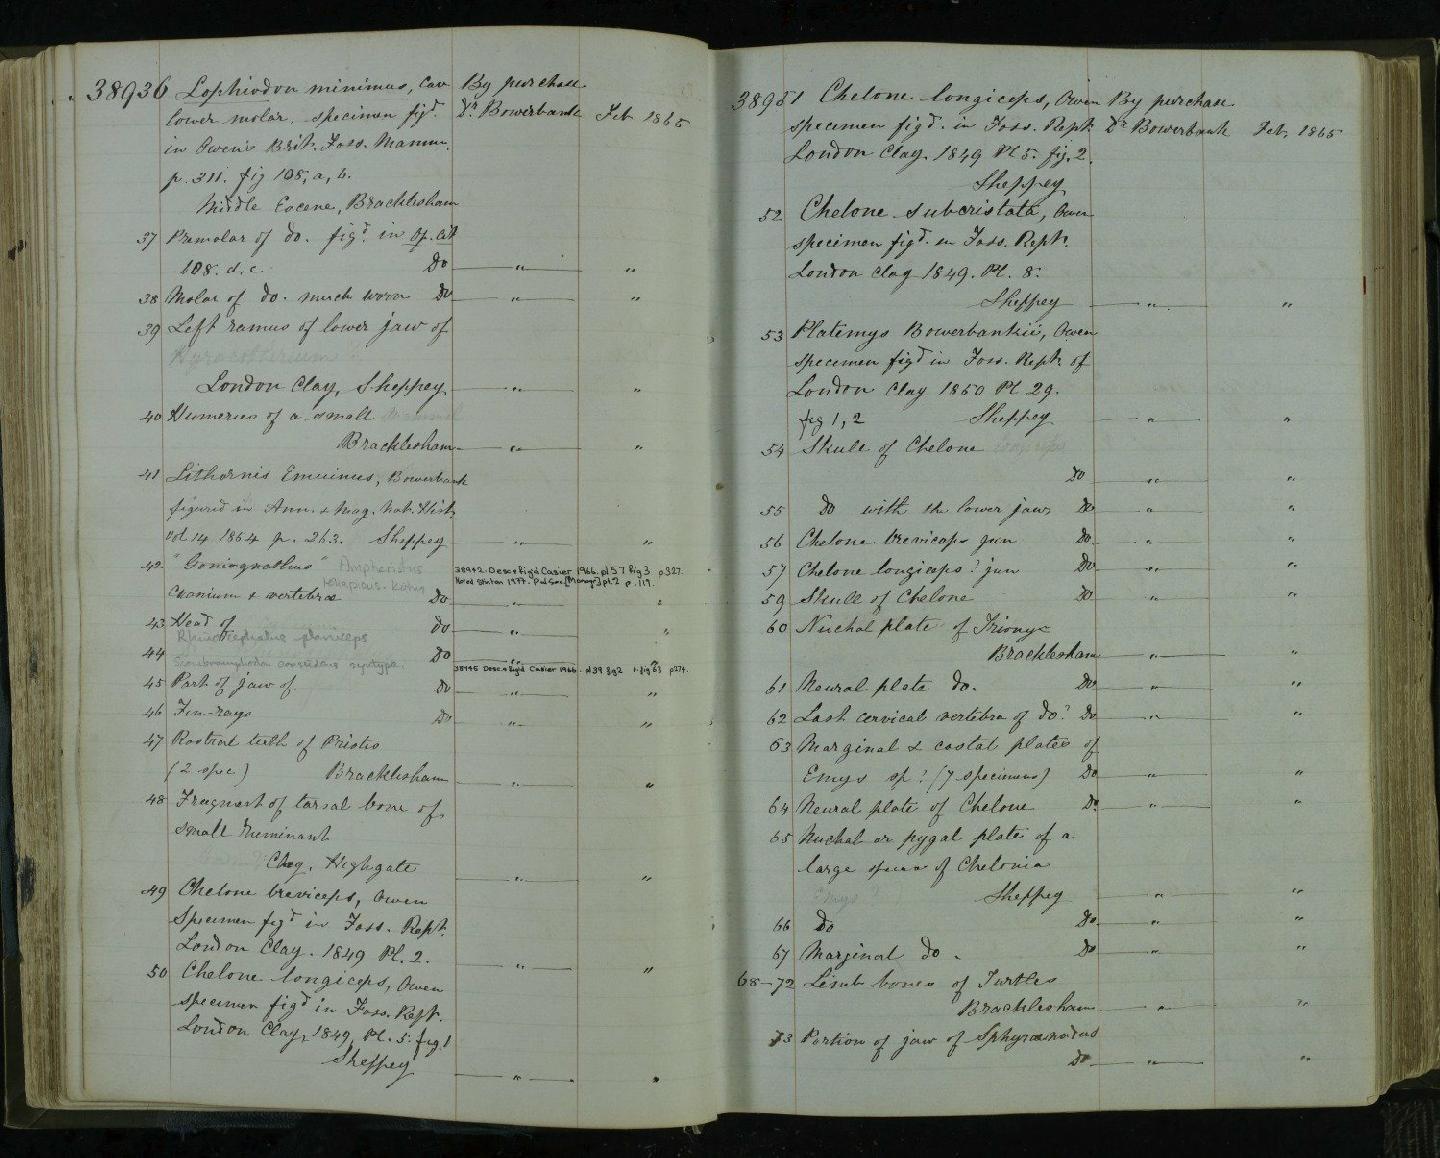 38936 Lophiodon minimus, Cuv By purchase
lower molar. specimen figd. Dr. Bowerbank Feb 1865
in Owen's Brit. Foss. Mamm.
p. 311. fig 108, a, b.
Middle Eocene, Bracklesham
37 Premolar of do. figd. in Op. cit
108. d. c. Do — " — "
38 Molar of do. much worn Do — " — "
39 Left ramus of lower jaw of
Hyracotherium ?
London Clay, Sheppey — " — "
40 Humerus of a small Mammal
Bracklesham — " — "
41 Lithornis Emuinus, Bowerbank
figured in Ann. & Mag. Nat. Hist.
vol 14 1854 p. 263. Sheppey — " — "
42 "Goniognathus" Ampheristus
toliapicus. König 38942. Desc & Figd Casier 1966. pl 57 fig 3 p327.
Hored Stinton 1977. Pal Soc [Monogr] pt 2 p. 119.
Cranium & vertebrae Do — " — "
43 Head of Do — " — "
Rhinocephalus planiceps
44 Do — " — "
Scombramphodon crassidens syntype.
38945 Desc & Figd Casier 1966. pl 39 fig 2 p274.
45 Part of jaw of Do — " — "
46 Fin-rays Do — " — "
47 Rostral teeth of Pristis
(2 spec) Bracklesham — " — "
48 Fragment of tarsal bone of
small Ruminant
Clay, Highgate — " — "
49 Chelone breviceps, Owen
Specimen figd in Foss. Rept.
London Clay. 1849 Pl. 2. — " — "
50 Chelone longiceps, Owen
specimen figd in Foss. Rept.
London Clay, 1849, Pl. 5. fig 1
Sheppey — " — "
38951 Chelone longiceps, Owen By purchase
specimen figd. in Foss. Rept. Dr Bowerbank Feb, 1865
London Clay. 1849 Pl 5. fig. 2.
Sheppey
52 Chelone subcristata, Owen
specimen figd. in Foss. Rept.
London Clay 1849. Pl. 8.
Sheppey — " — "
53 Platemys Bowerbankii, Owen
specimen figd in Foss. Rept. of
London Clay 1850 Pl 29.
fig 1, 2 Sheppey — " — "
54 Skull of Chelone longiceps
Do — " — "
55 Do with the lower jaws Do — " — "
56 Chelone breviceps jun Do — " — "
57 Chelone longiceps? jun Do — " — "
59 Skull of Chelone Do — " — "
60 Nuchal plate of Trionyx
Bracklesham — " — "
61 Neural plate Do. Do — " — "
62 Last cervical vertebra of Do? Do — " — "
63 Marginal & costal plates of
Emys sp? (7 specimens) Do — " — "
64 Neural plate of Chelone Do. — " — "
65 Nuchal or pygal plate of a
large specn of Chelonia
Emys Sheppey — " — "
66 Do Do. — " — "
67 Marginal do. Do — " — "
68–72 Limb bones of Turtles
Bracklesham — " — "
73 Portion of jaw of Sphyraenodus
Do — " — "